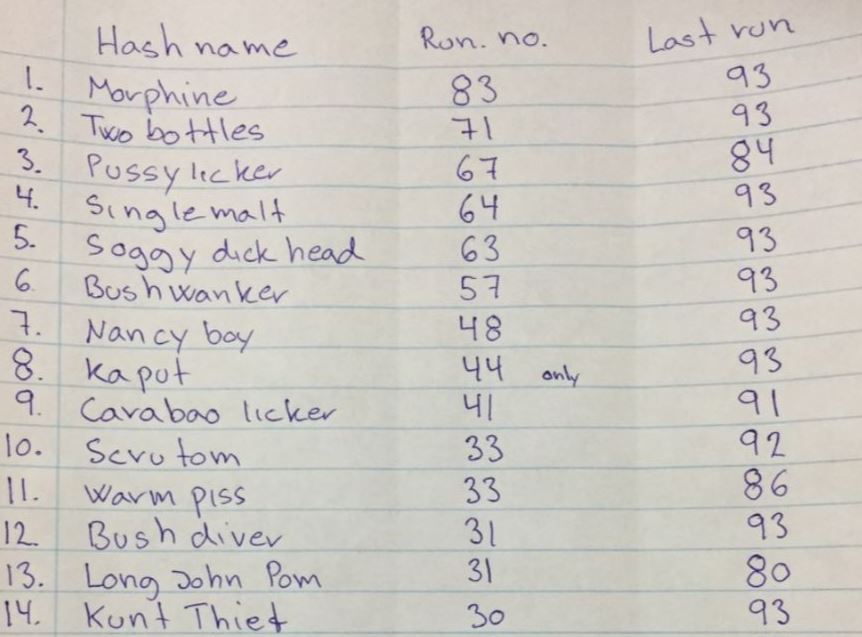 Hash name Run. no. Last run
1. Morphine 83 93
2. Two bottles 71 93
3. Pussy licker 67 84
4. Single malt 64 93
5. Soggy dick head 63 93
6. Bush wanker 57 93
7. Nancy boy 48 93
8. Kaput 44 only 93
9. Carabao licker 41 91
10. Scrutom 33 92
11. Warm piss 33 86
12. Bush diver 31 93
13. Long John Pom 31 80
14. Kunt Thief 30 93